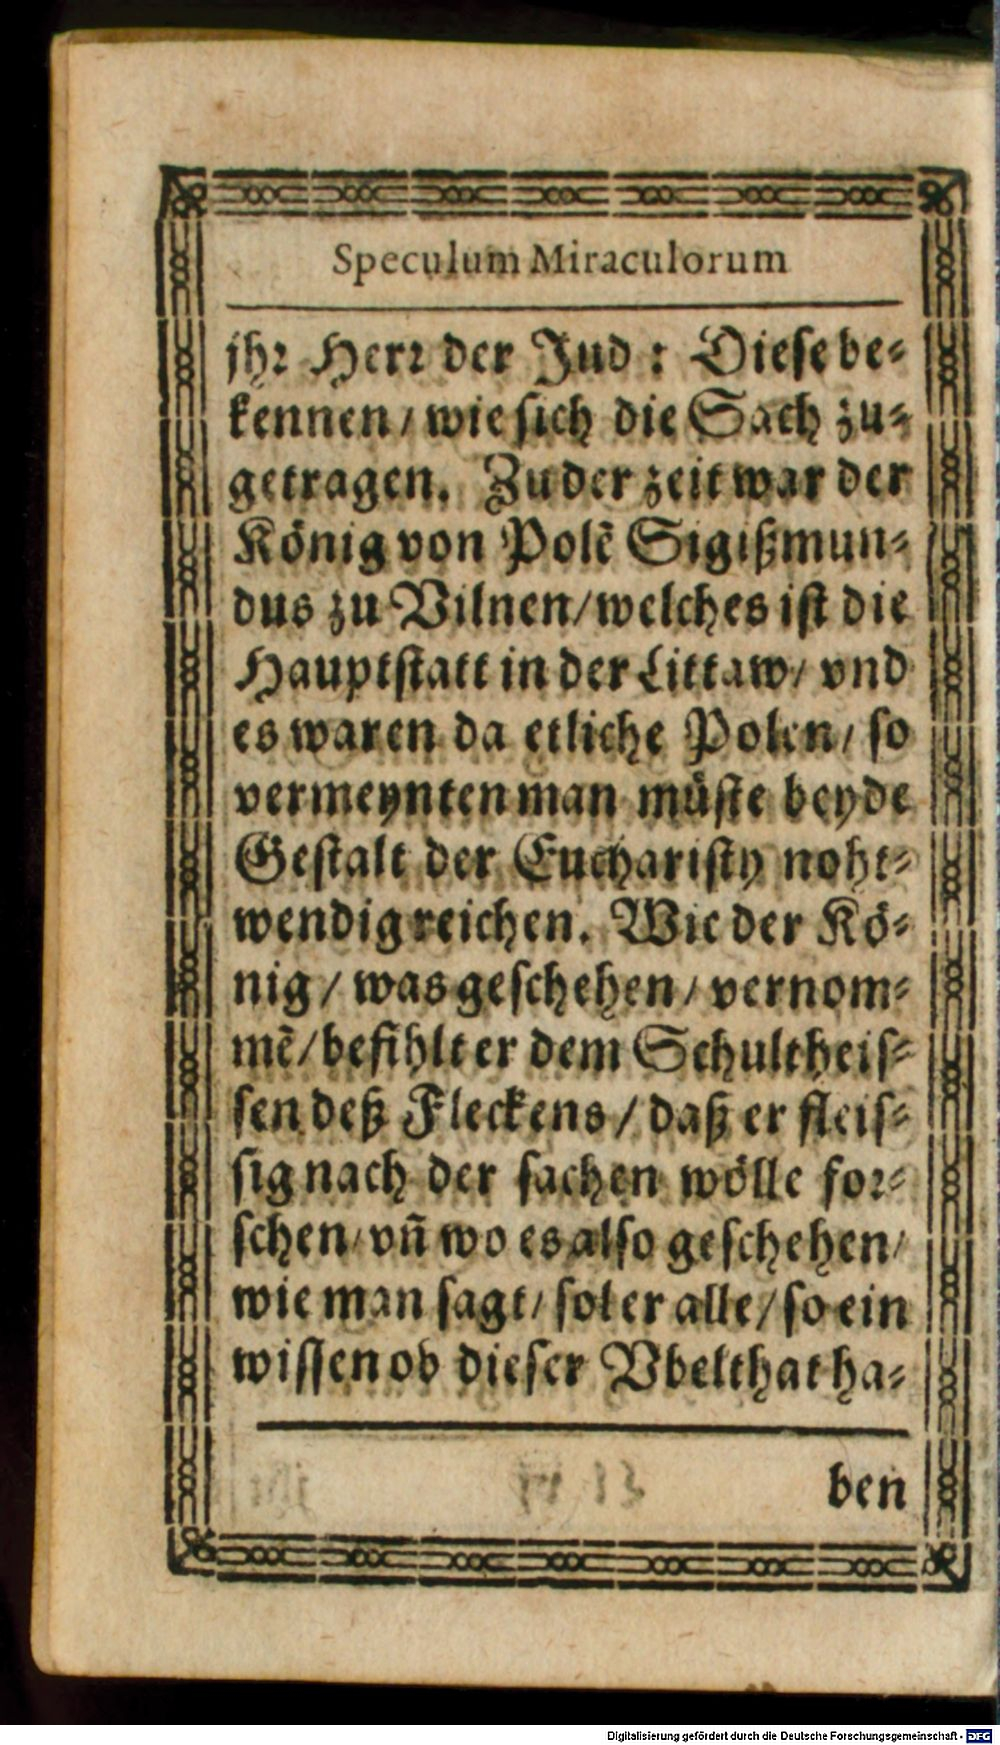 Speculum Miraculorum
jhr Herr der Jud : Diese be⸗
kennen / wie sich die Sach zu⸗
getragen. Zu der zeit war der
König von Polẽ Sigißmun⸗
dus zu Vilnen / welches ist die
Hauptstatt in der Littaw / vnd
es waren da etliche Polen / so
vermeynten man müste beyde
Gestalt der Eucharisty noht⸗
wendig reichen. Wie der Kö⸗
nig / was geschehen / vernom⸗
mẽ / befihlt er dem Schultheis⸗
sen deß Fleckens / daß er fleis⸗
sig nach der sachen wölle for⸗
schen / vñ wo es also geschehen /
wie man sagt / sol er alle / so ein
wissen ob dieser Vbelthat ha⸗
ben
Digitalisierung gefördert durch die Deutsche Forschungsgemeinschaft - DFG